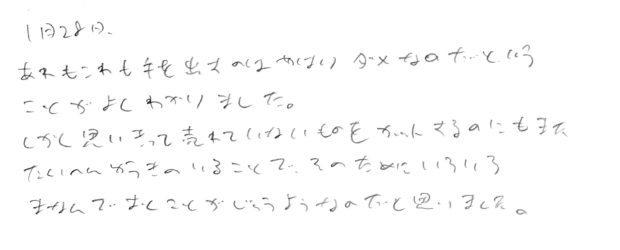 1月28日.
あれもこれも手を出すのはやはりダメなのだという
ことがよくわかりました。
しかし思い きって売れていないものをカットするのにもまた
たいへんゆうきのいることで、そのためにいろいろ
まなんでおくことがじゅうようなのだと思いました。